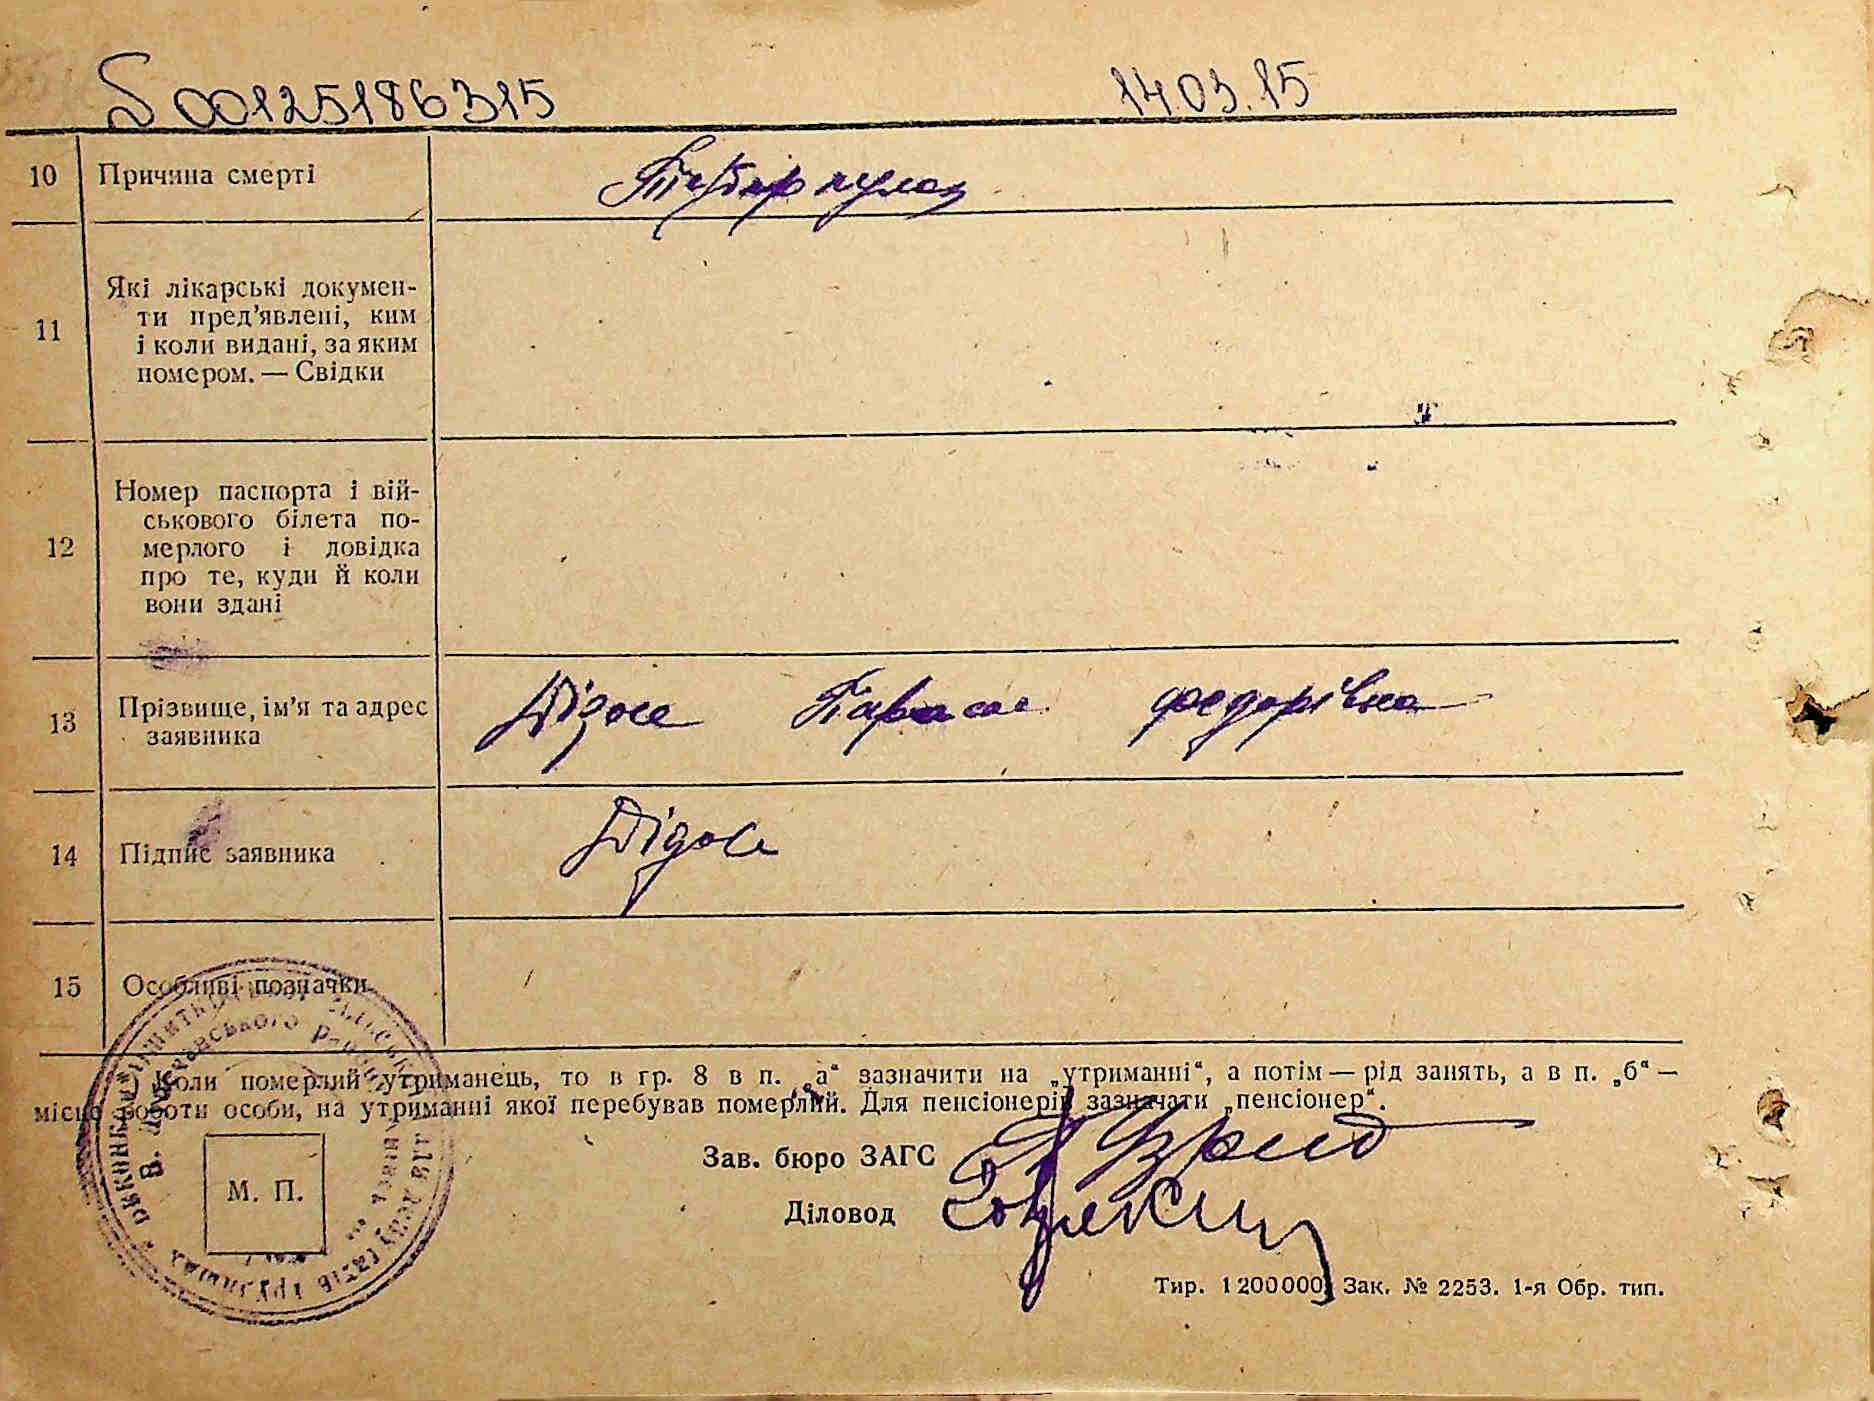 S00125186315 14.03.15
10 Причина смерті
11 Які лікарські докумен-
ти пред’явлені, ким
і коли видані, за яким
номером. — Свідки
12 Номер паспорта і вій-
ськового білета по-
мерлого і довідка
про те, куди й коли
вони здані
13 Прізвище, ім’я та адрес
заявника
федорівна
14 Підпис заявника
15 Особливі позначки
Коли померлий утриманець, то в гр. 8 в п. „а“ зазначити на „утриманні“, а потім — рід занять, а в п. „б“ —
місце роботи особи, на утриманні якої перебував померлий. Для пенсіонерів зазначати „пенсіонер“.
Зав. бюро ЗАГС
Діловод
М. П.
Тир. 1200000. Зак. № 2253. 1-я Обр. тип.